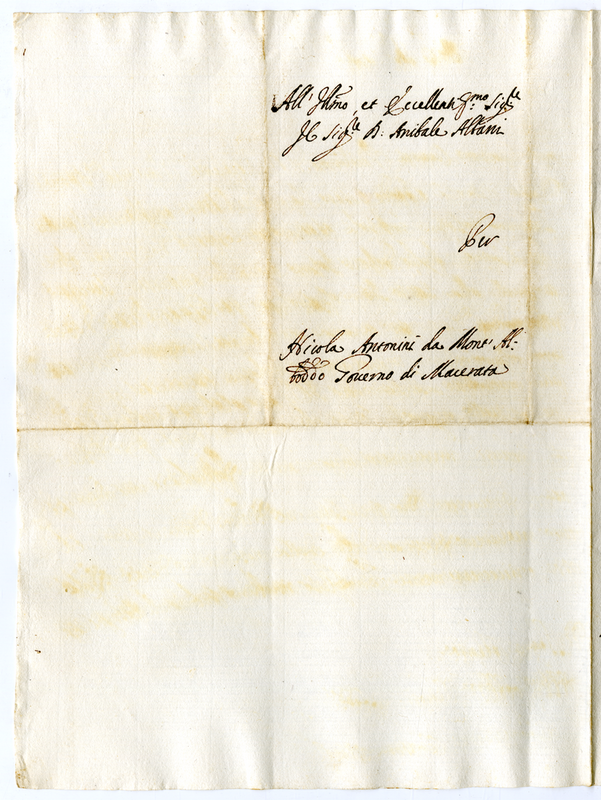 All' Illmo, et Eccellentissmo Sigre
Il Sigre D: Anibale Albani
Per
Nicola Antonini da Mont' Al:
boddo Governo di Macerata